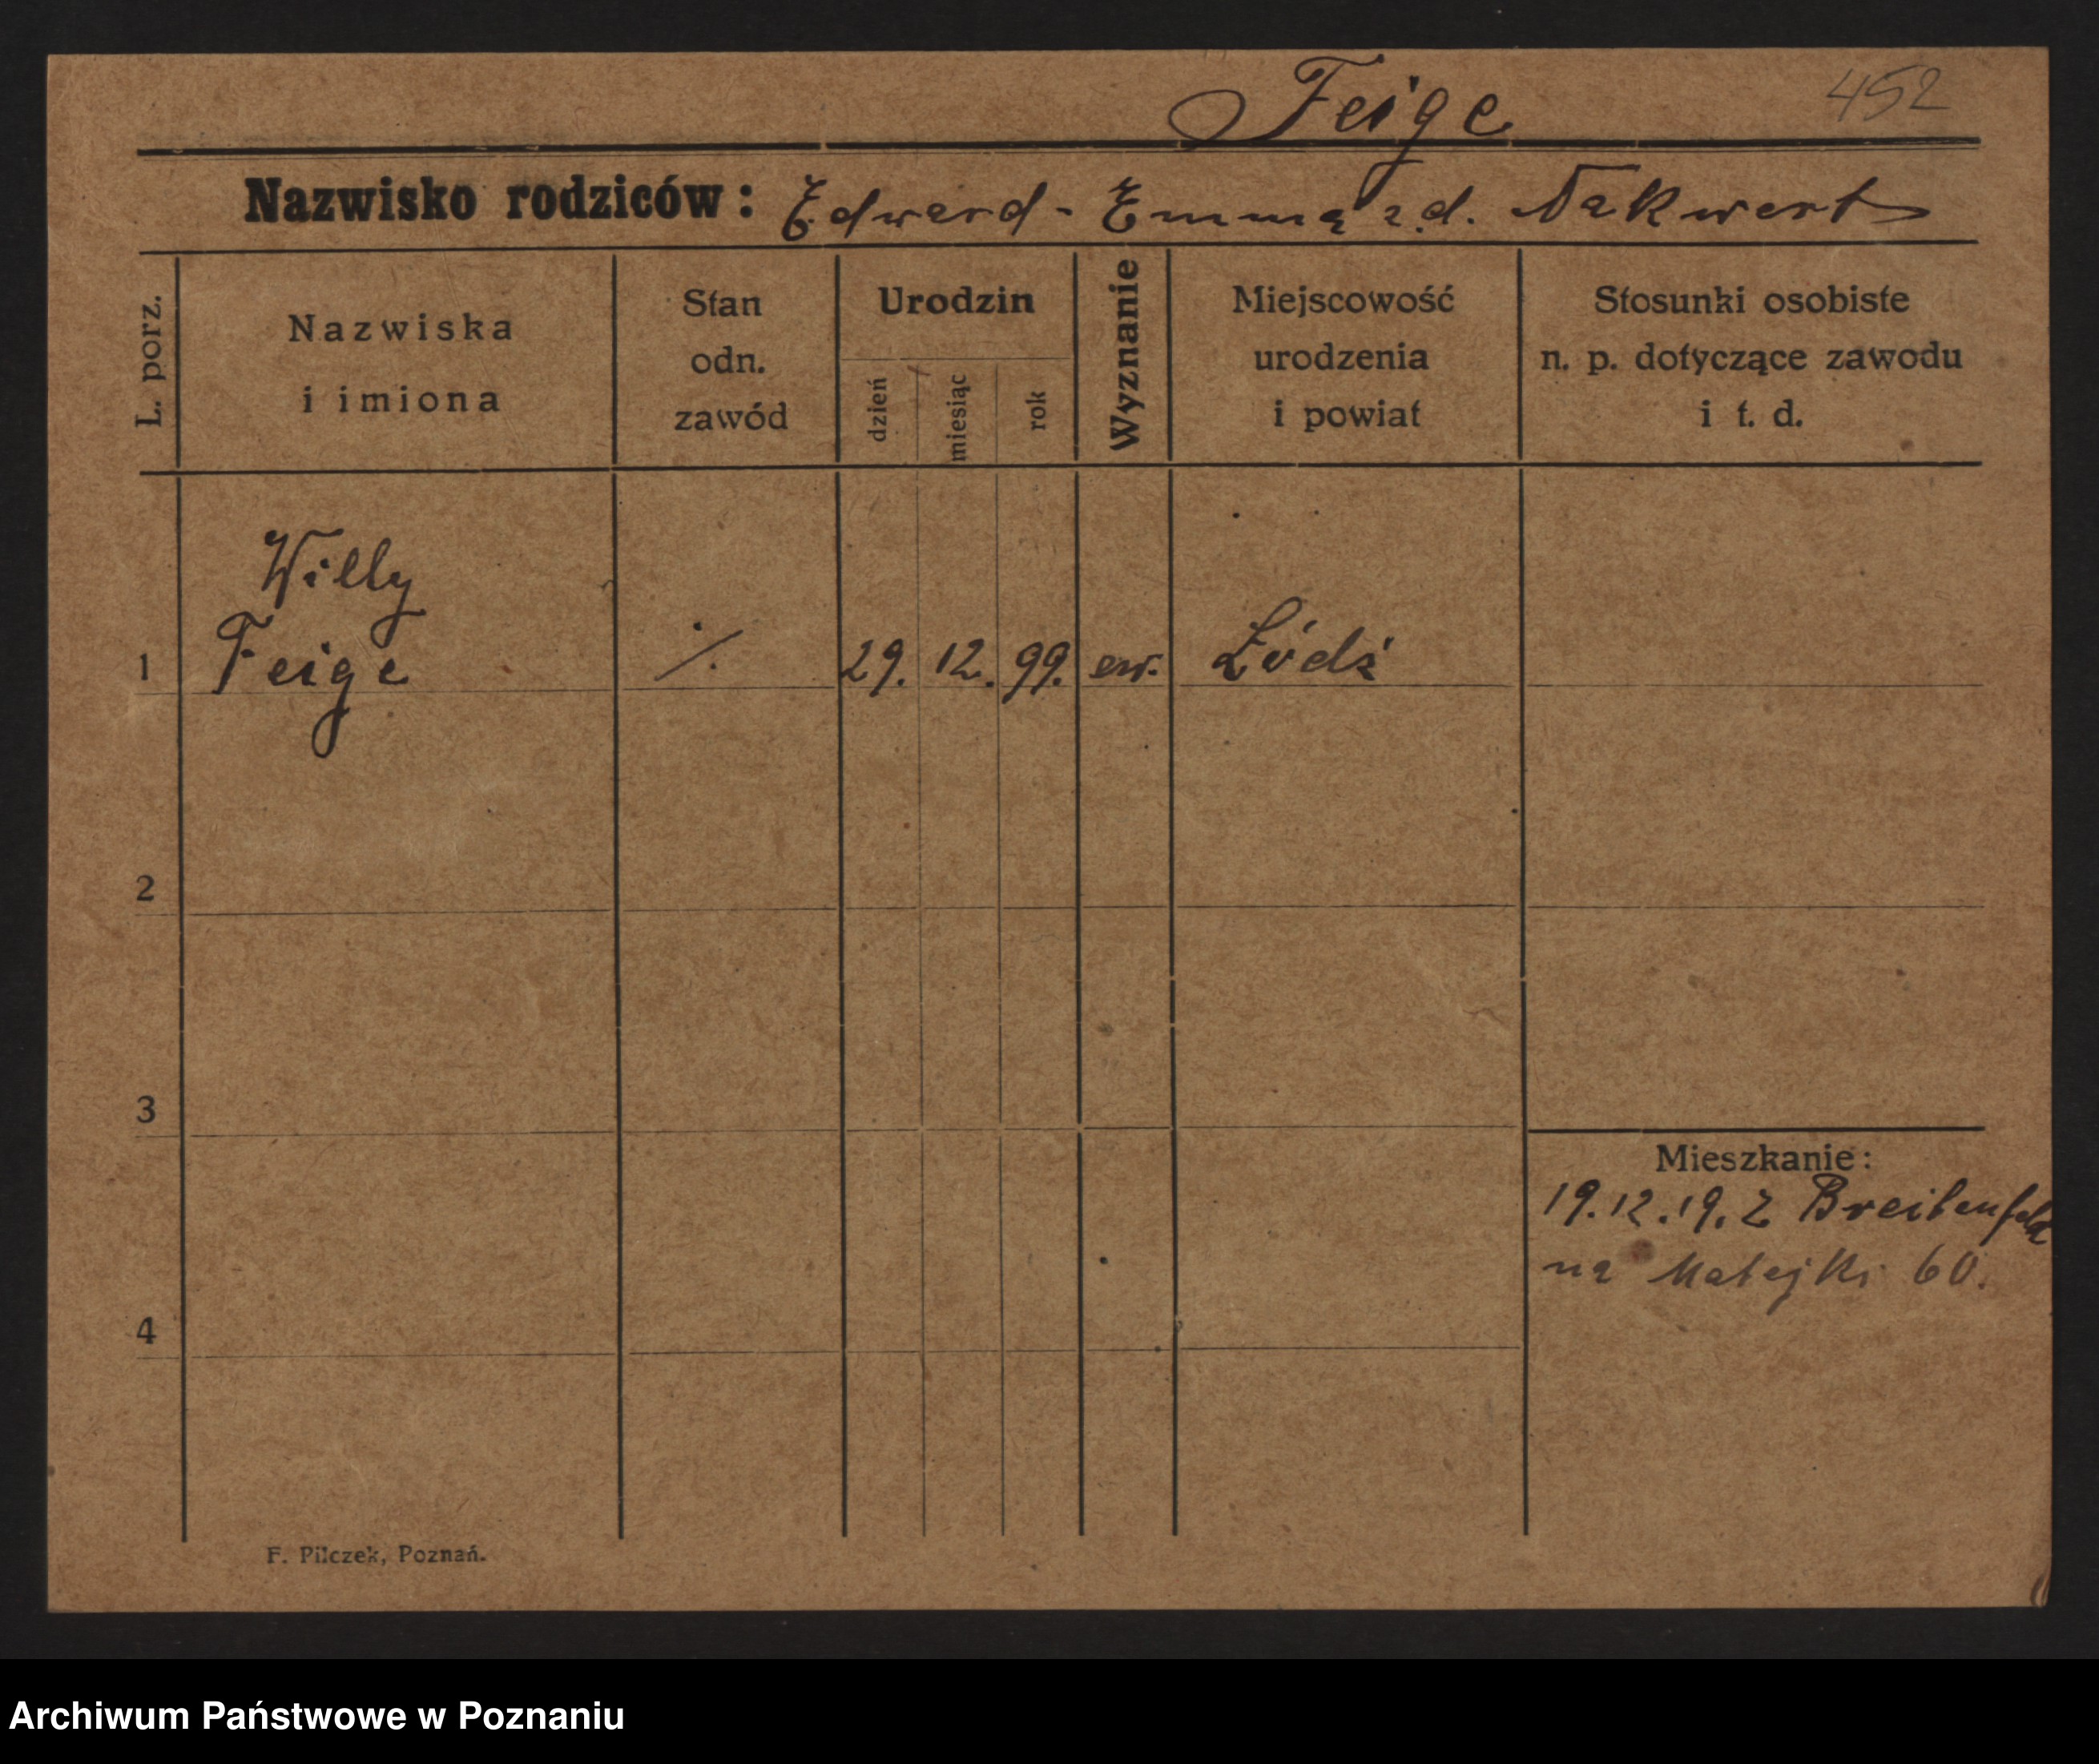 Feige 452
Nazwisko rodziców: Edward - Emma z.d. Nakwert
L. porz.
Nazwiska
i imiona
Stan
odn.
zawód
Urodzin
dzień
miesiąc
rok
Wyznanie
Miejscowość
urodzenia
i powiat
Stosunki osobiste
n. p. dotyczące zawodu
i t. d.
Willy
1 Feige ·/. 29. 12. 99. ew. Łódź
2
3
Mieszkanie:
19.12.19. z Breitenfeld
na Matejki 60.
4
F. Pilczek, Poznań.
Archiwum Państwowe w Poznaniu